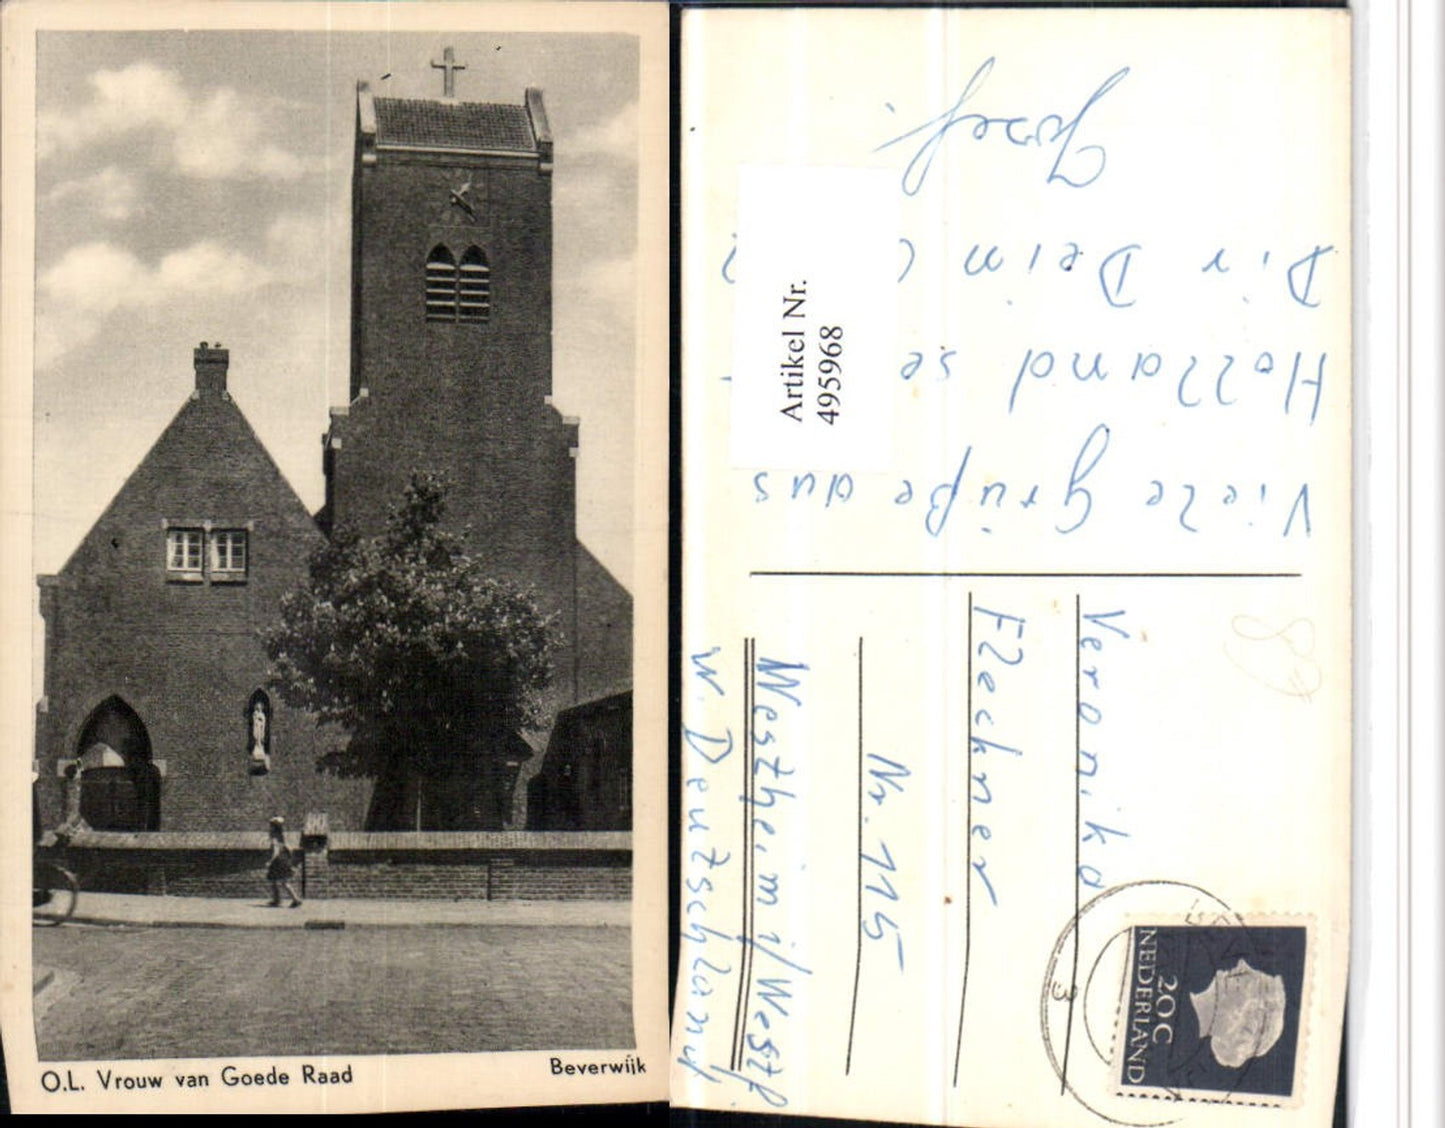 O.L. Vrouw van Goede Raad
Beverwijk
Artikel Nr.
495968
Viele Grüße aus
Holland se
Dir Dein
Josef.
Veronika
Flechner
Nr. 115
Westheim i/Westf.
W. Deutschland
NEDERLAND
20c
3